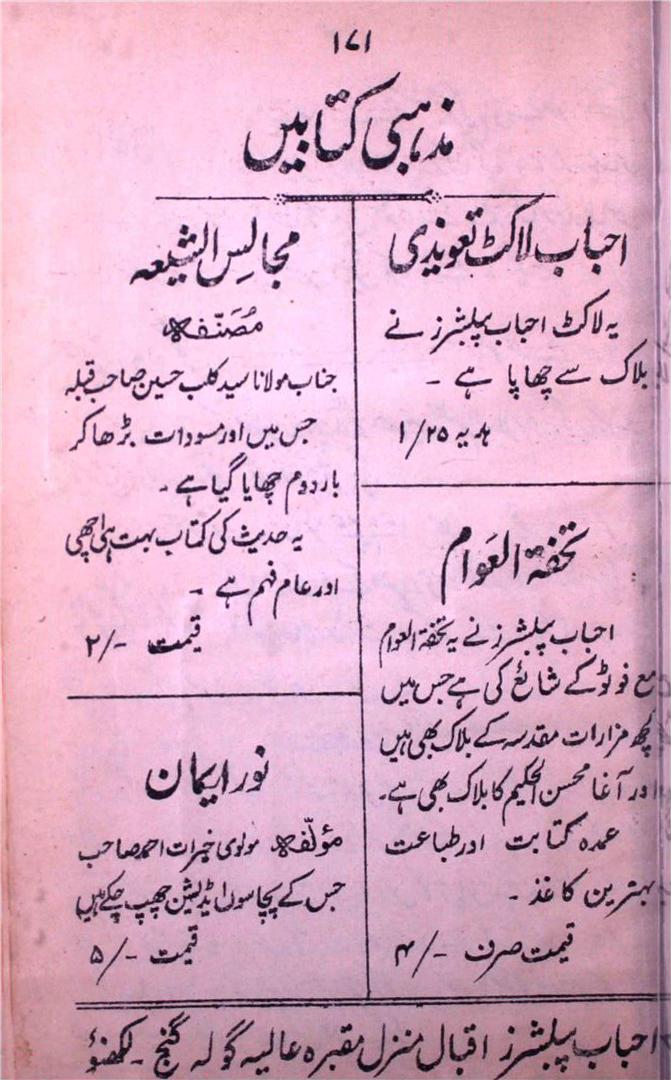 ۱۷۱
مذہبی کتابیں
احباب لاکٹ تعویذی
یہ لاکٹ احباب پبلشرز نے
بلاک سے چھاپا ہے ۔
ہدیہ ۱/۲۵
تحفۃ العوام
احباب پبلشرز نے یہ تحفۃ العوام
مع فوٹو کے شائع کی ہے جس میں
کچھ مزارات مقدسہ کے بلاک بھی ہیں
اور آغا محسن الحکیم کا بلاک بھی ہے۔
عمدہ کتابت اور طباعت
بہترین کاغذ ۔
قیمت صرف ۴/-
مجالس الشیعہ
مُصَنّفہ
جناب مولانا سید کلب حسین صاحب قبلہ
جس میں اور مسودات بڑھا کر
بار دوم چھاپا گیا ہے ۔
یہ حدیث کی کتاب بہت ہی اچھی
اور عام فہم ہے ۔
قیمت ۲/-
نور ایمان
مؤلّفہ مولوی خیرات احمد صاحب
جس کے پچاسوں ایڈیشن چھپ چکے ہیں
قیمت ۵/-
احباب پبلشرز اقبال منزل مقبرہ عالیہ گولہ گنج ۔ لکھنؤ